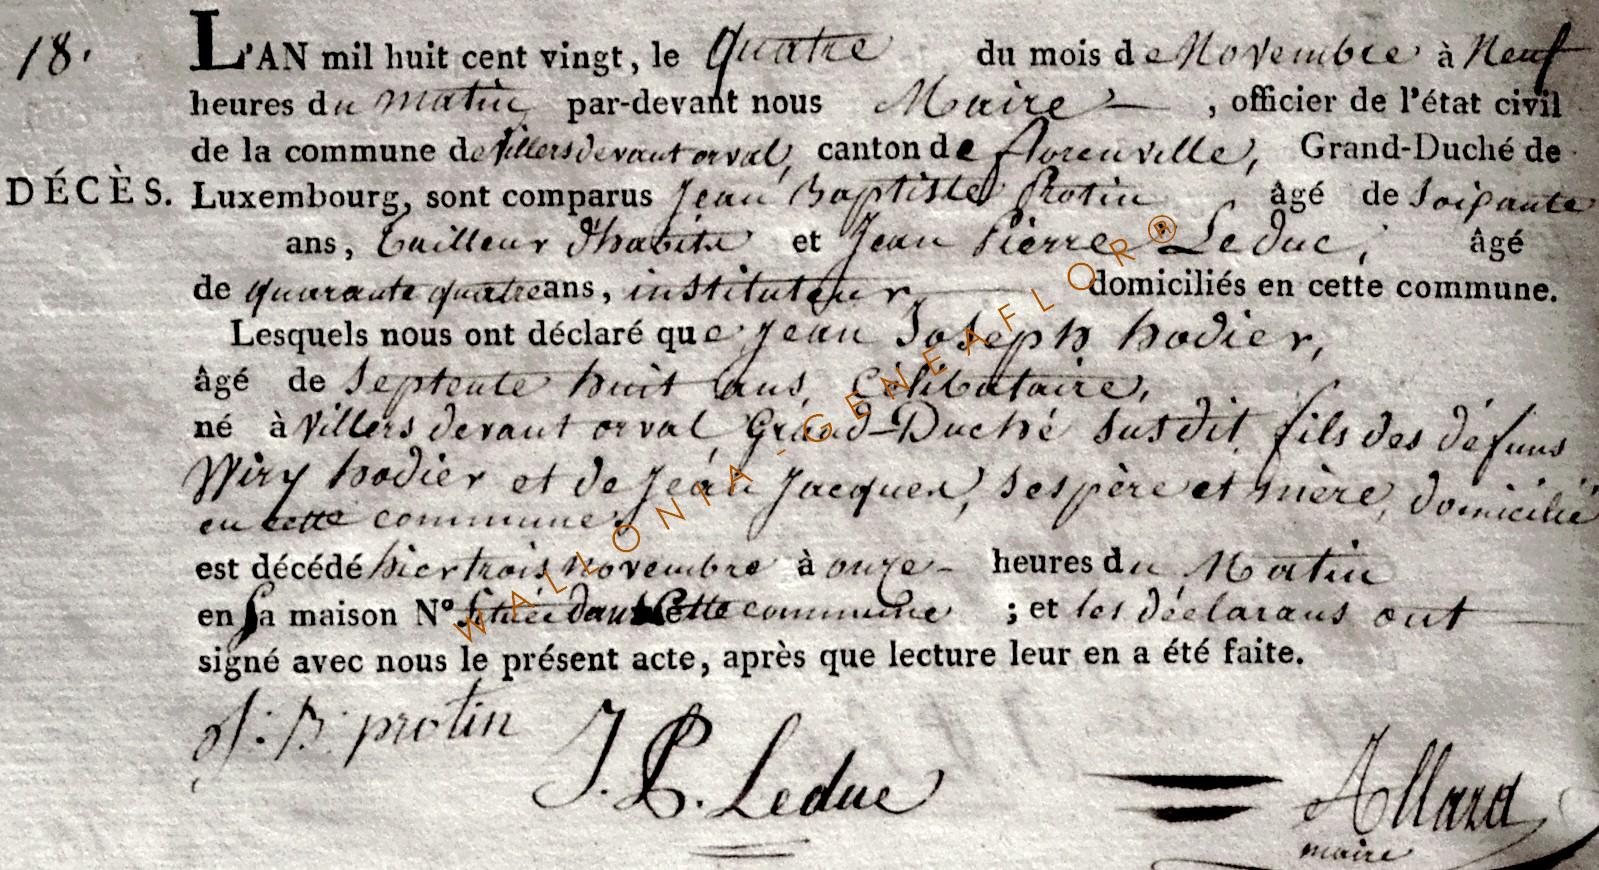 18. L'AN mil huit cent vingt, le quatre du mois de Novembre à Neuf
heures du matin par-devant nous Maire , officier de l'état civil
de la commune de Villers devant orval, canton de florenville, Grand-Duché de
DÉCÈS. Luxembourg, sont comparus Jean Baptiste Protin âgé de soixante
ans, tailleur d'habits et Jean Pierre Leduc, âgé
de quarante quatre ans, instituteur domiciliés en cette commune.
Lesquels nous ont déclaré que Jean Joseph hodier,
âgé de septente huit ans, Celibataire,
né à Villers devant orval, Grand-Duché susdit, fils des défuns
Wiry hodier et de Jean Jacques, ses père et mère, domicilié
en cette commune.
est décédé hier trois Novembre à onze heures du Matin
en sa maison N° située dans Cette commune ; et les déclarans ont
signé avec nous le présent acte, après que lecture leur en a été faite.
J: B: protin J. P. Leduc Allard
maire
WALLONIA-GENEAFLOR®